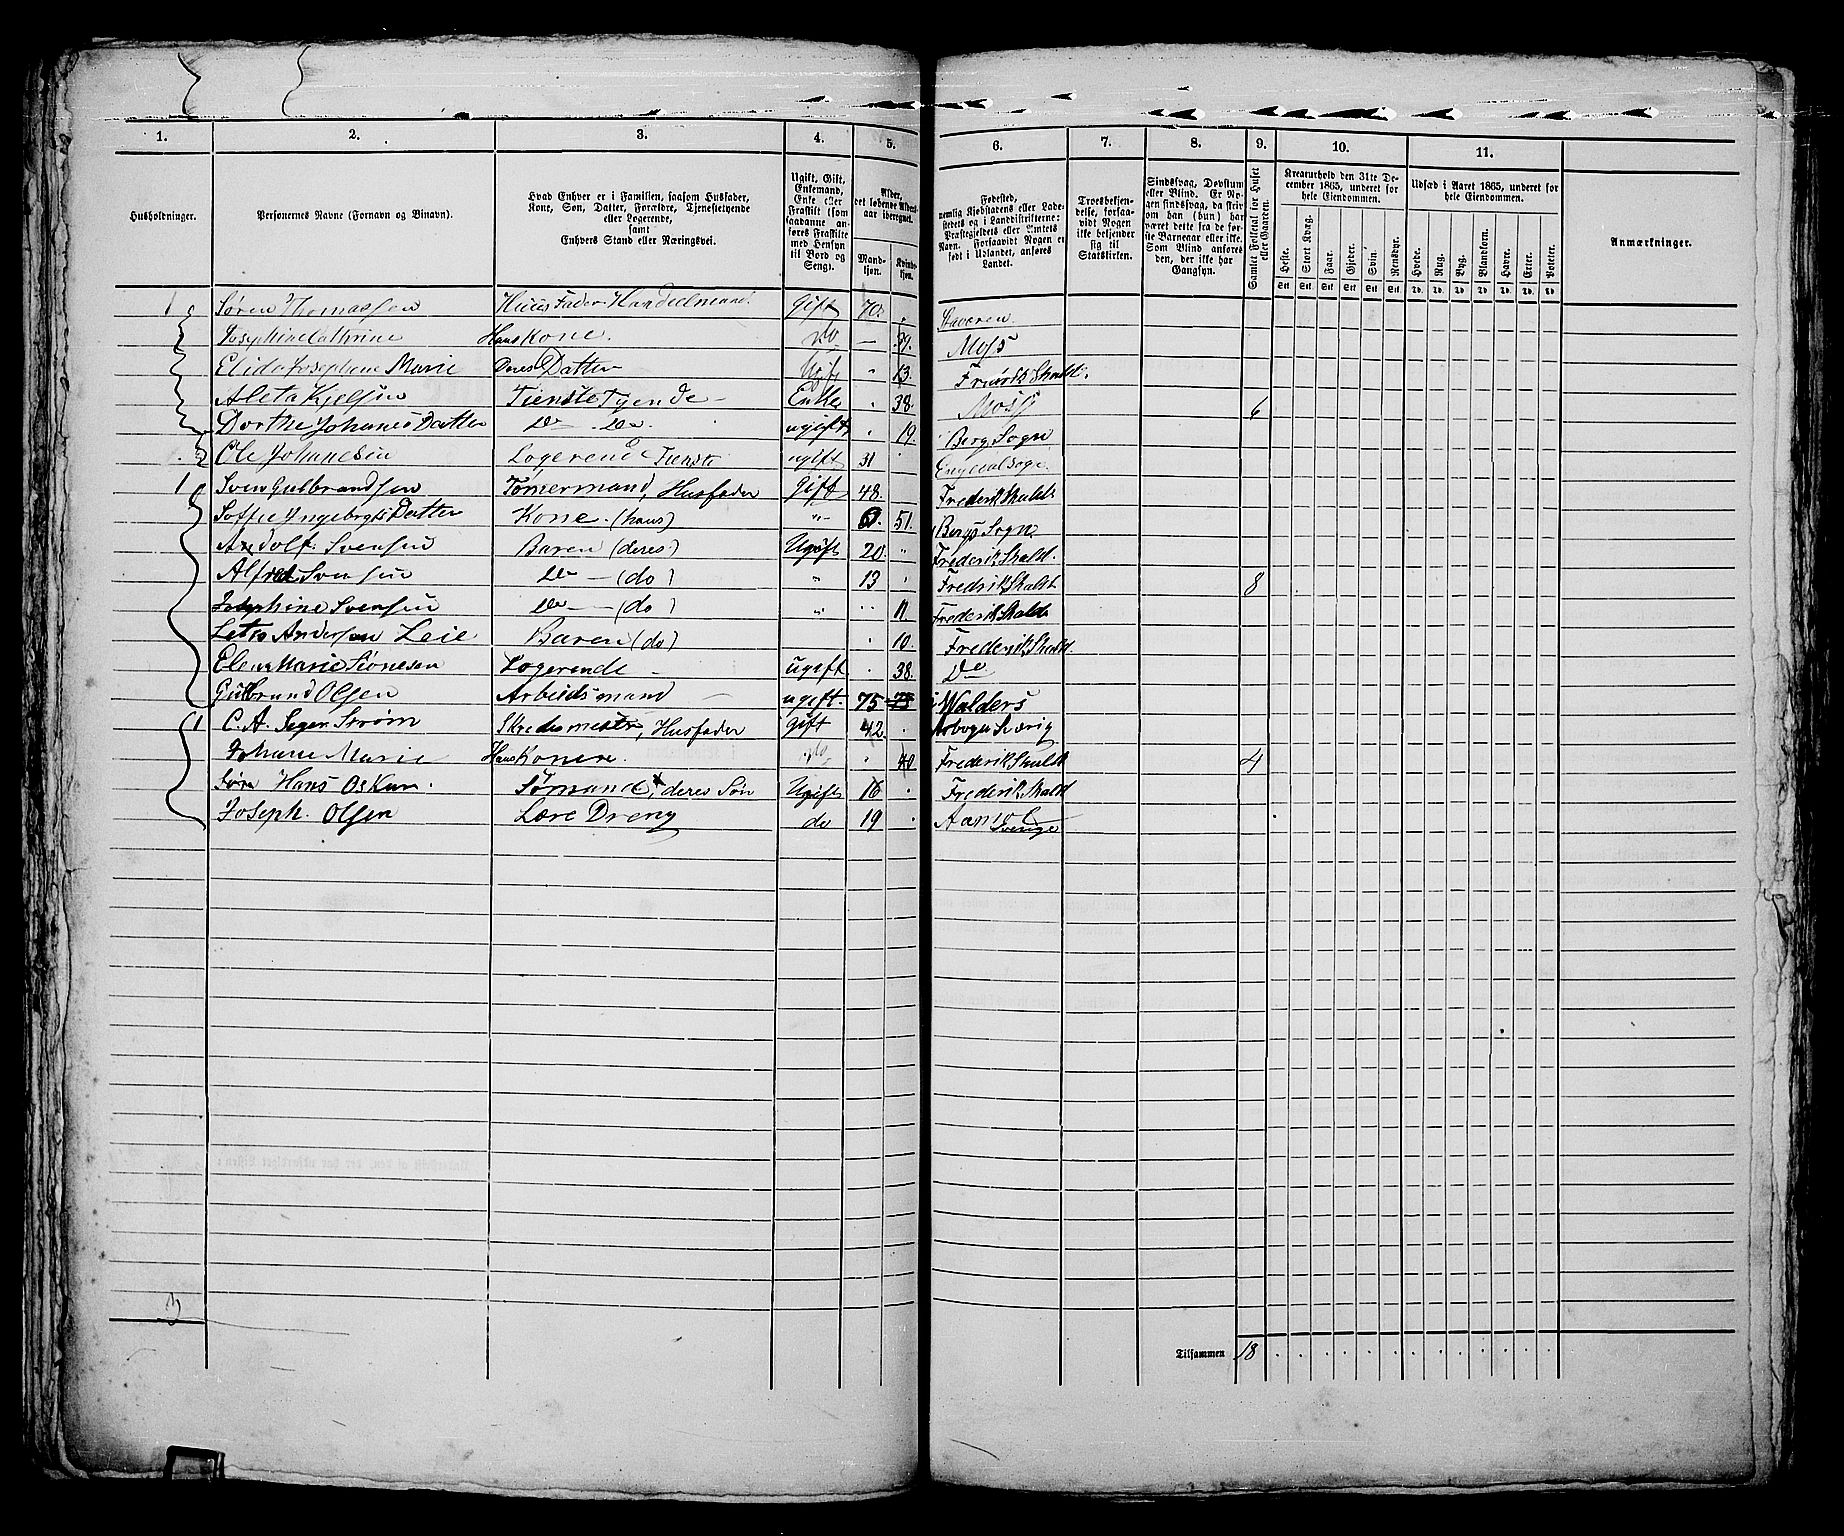 1. 2. 3. 4. 5. 6. 7. 8. 9. 10. 11.
Husholdninger.
Personernes Navne (Fornavn og Binavn).
Hvad Enhver er i Familien, saasom Husfader,
Kone, Søn, Datter, Forældre, Tjenestetyende
eller Logerende,
samt
Enhvers Stand eller Næringsvei.
Ugift, Gift,
Enkemand,
Enke eller
Fraskilt (som
saadanne an-
føres Fraskilte
med Hensyn
til Bord og
Seng).
Alder,
det løbende Alders-
aar iberegnet.
Mand-
kjøn.
Kvinde-
kjøn.
Fødested,
nemlig Kjøbstadens eller Lade-
stedets og i Landdistrikterne:
Præstegjeldets eller Amtets
Navn. Forsaavidt Nogen er
født i Udlandet, anføres
Landet.
Troesbekjen-
delse, forsaa-
vidt Nogen
ikke bekjender
sig til
Statskirken.
Sindssvag, Døvstum
eller Blind. Er No-
gen sindssvag, da skriv
om han (hun) har
været dette fra de før-
ste Barneaar eller ikke.
Som Blind anføres
den, der ikke har
Gangsyn.
Samlet Folketal for Huset
eller Gaarden.
Kreaturhold den 31te De-
cember 1865, underet for
hele Eiendommen.
Heste. Stort Kvæg. Faar. Gjeder. Svin. Rensdyr.
Stk. Stk. Stk. Stk. Stk. Stk.
Udsæd i Aaret 1865, underet for
hele Eiendommen.
Hvede. Rug. Byg. Blandkorn. Havre. Erter. Poteter.
Td. Td. Td. Td. Td. Td. Td.
Anmærkninger.
1 Søren Thomassen Huus Fader Handelmand. Gift 70. Staveren
Josephine Cathrine Hans Kone. Do — 39. Moss
Elida Josephine Marie Deres Datter Ugift " 13. Fredrikshald.
Aleta Kjelsen TiensteTyende Enke . 38. Moss 6
Dorthe Johanes Datter Do Do ugift . 19. Berg Sogn
Ole Johanesen Logerende Tienste ugift 31
1 Sven Gulbrandsen Tømermand, Husfader Gift 48. Frederikshald
Soffie Yngebregts Datter Kone. (hans) " 51. Bergs Sogn
Andolf. Svensen Baren (deres) Ugift 20. " Frederikshald.
Alfred Svensen Do — (do) " 13 Fredrikshald 8
Josephine Svensen Do — (do) " 11. Frederikshald
Andersen Leie Baren (do) 10. Frederikshald
Marie Logerende ugift . 38. Do
Gulbrand Olsen Arbeidsmand ugift. 75 Walders
1 C. A. Segerstrøm Skredermester, Husfader Gift 42. Arboga Sverig
Johane Marie Hans Konen. do " 40 Frederikshald 4
Søn Hans Oskar. Sømand, deres Søn Ugift 16 Frederikshald
Joseph. Olsen Lære Dreng do 19
Sverige
3
Tilsammen 18